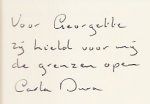 Voor Georgette
zij hield voor mij
de grenzen open
Carla